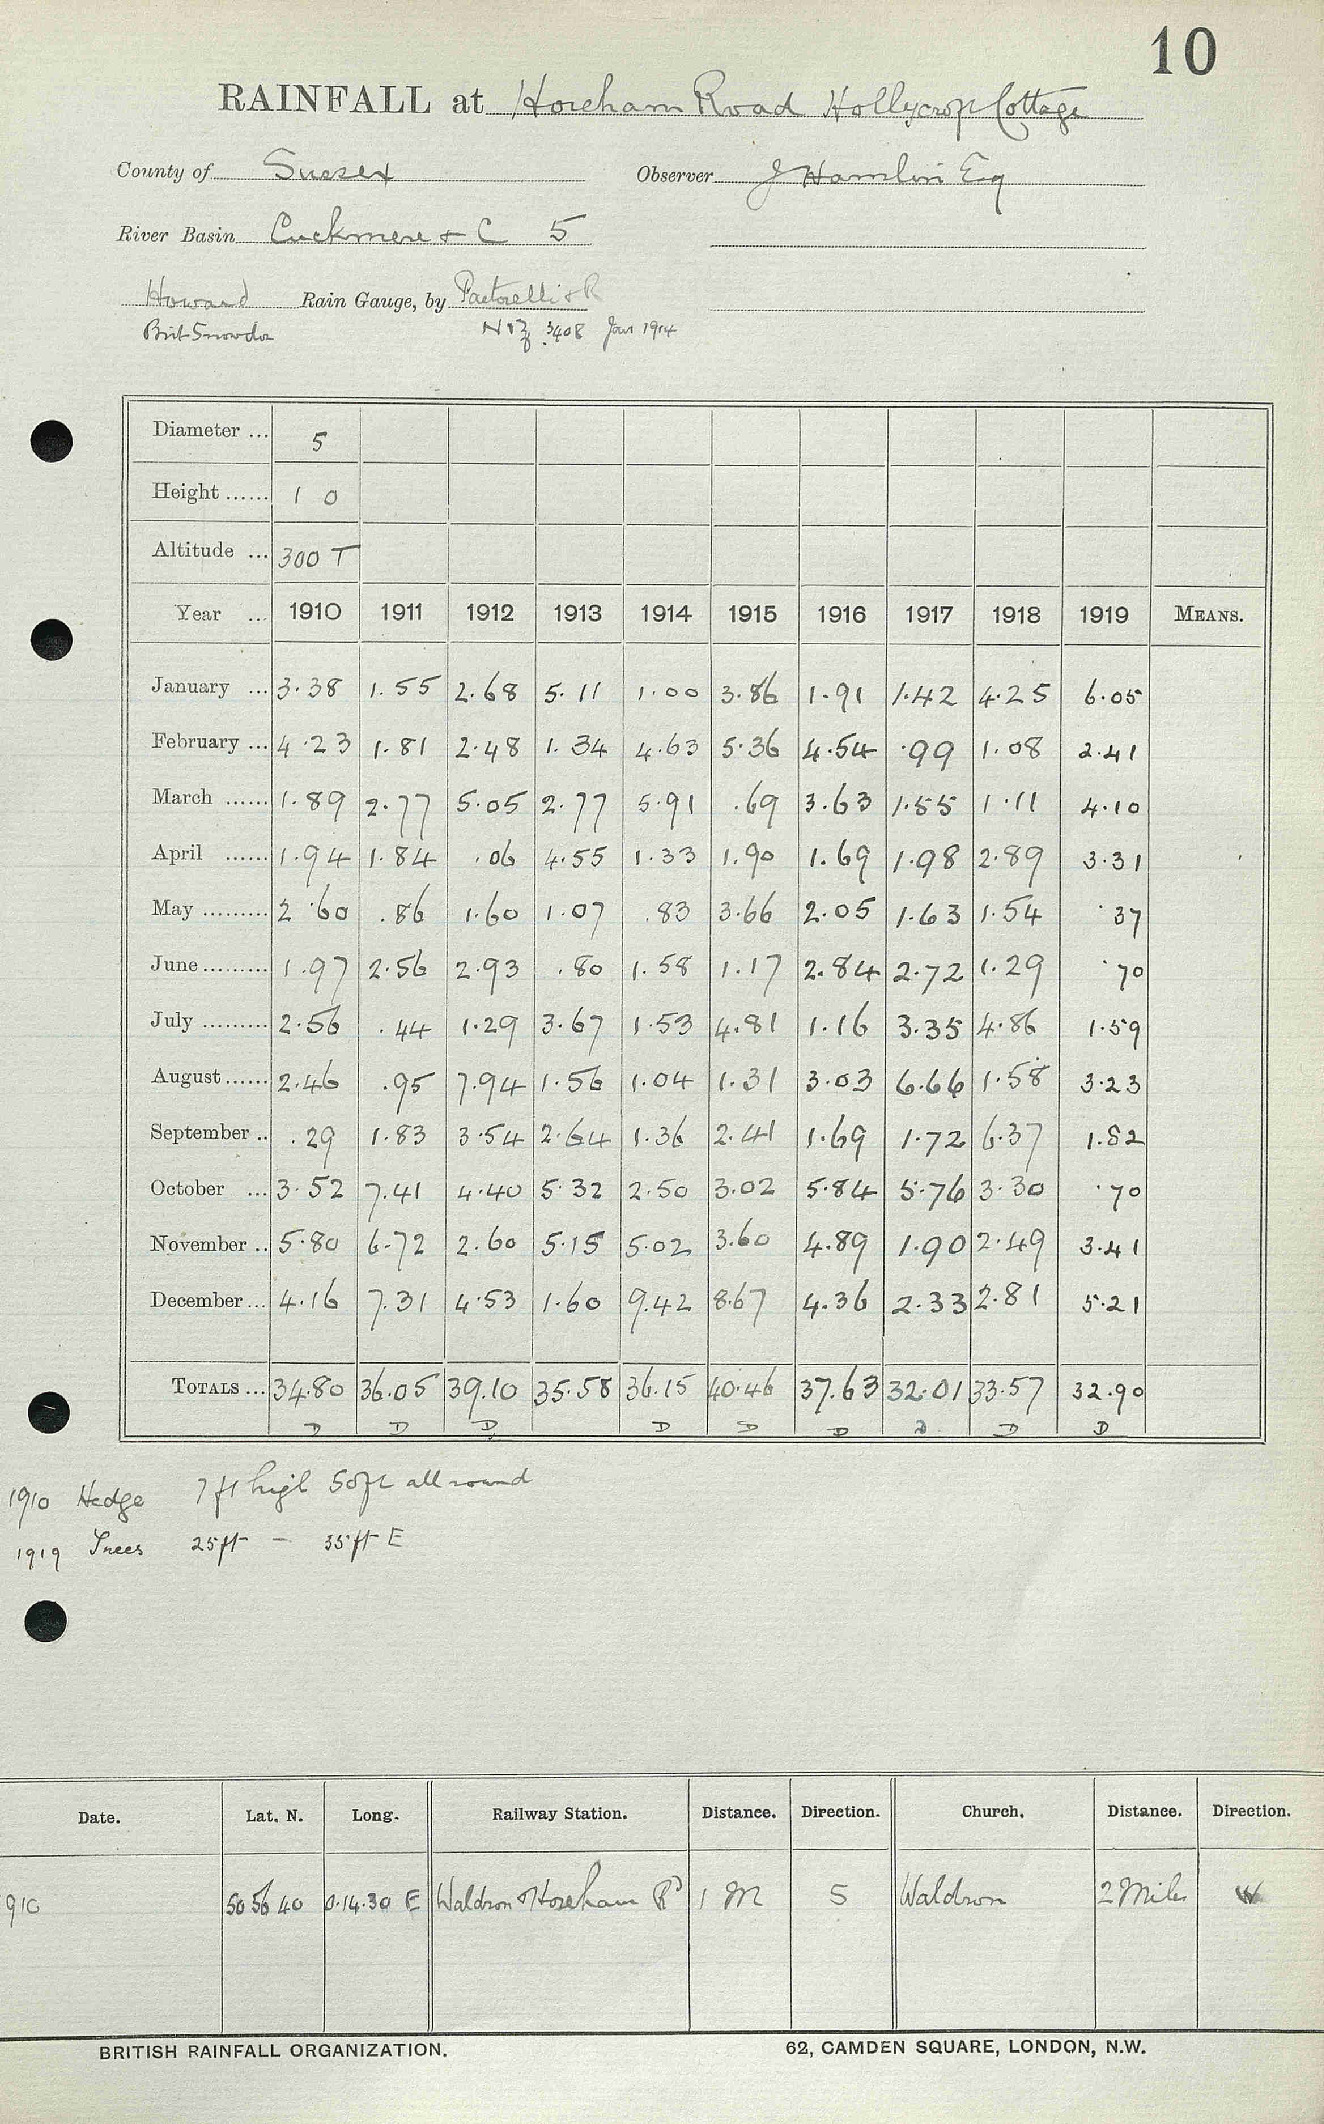 10
RAINFALL at Horeham Road Hollycrop Cottage
County of Sussex Observer J Hamlin Esq
River Basin Cuckmere & C 5
Howard Rain Gauge, by Pastorelli & R
Brit Snowdon 3408 Jan 1914
Diameter ... 5
Height ...... 1 0
Altitude ... 300 T
Year ... 1910 1911 1912 1913 1914 1915 1916 1917 1918 1919 MEANS.
January ... 3.38 1.55 2.68 5.11 1.00 3.86 1.91 1.42 4.25 6.05
February ... 4.23 1.81 2.48 1.34 4.63 5.36 4.54 .99 1.08 2.41
March ...... 1.89 2.77 5.05 2.77 5.91 .69 3.63 1.55 1.11 4.10
April ...... 1.94 1.84 .06 4.55 1.33 1.90 1.69 1.98 2.89 3.31
May ......... 2.60 .86 1.60 1.07 .83 3.66 2.05 1.63 1.54 .37
June ......... 1.97 2.56 2.93 .80 1.58 1.17 2.84 2.72 1.29 .70
July ......... 2.56 .44 1.29 3.67 1.53 4.81 1.16 3.35 4.86 1.59
August ...... 2.46 .95 7.94 1.56 1.04 1.31 3.03 6.66 1.58 3.23
September .. .29 1.83 3.54 2.64 1.36 2.41 1.69 1.72 6.37 1.82
October ... 3.52 7.41 4.40 5.32 2.50 3.02 5.84 5.76 3.30 .70
November .. 5.80 6.72 2.60 5.15 5.02 3.60 4.89 1.90 2.49 3.41
December ... 4.16 7.31 4.53 1.60 9.42 8.67 4.36 2.33 2.81 5.21
TOTALS ... 34.80 36.05 39.10 35.58 36.15 40.46 37.63 32.01 33.57 32.90
D D D D D D D D D
1910 Hedge 7 ft high 50ft all round
1919 Trees 25ft - 35ft E
Date. Lat. N. Long. Railway Station. Distance. Direction. Church. Distance. Direction.
910 50 56 40 0.14.30 E Waldron & Horeham Rd 1 M S Waldron 2 Miles W
BRITISH RAINFALL ORGANIZATION. 62, CAMDEN SQUARE, LONDON, N.W.